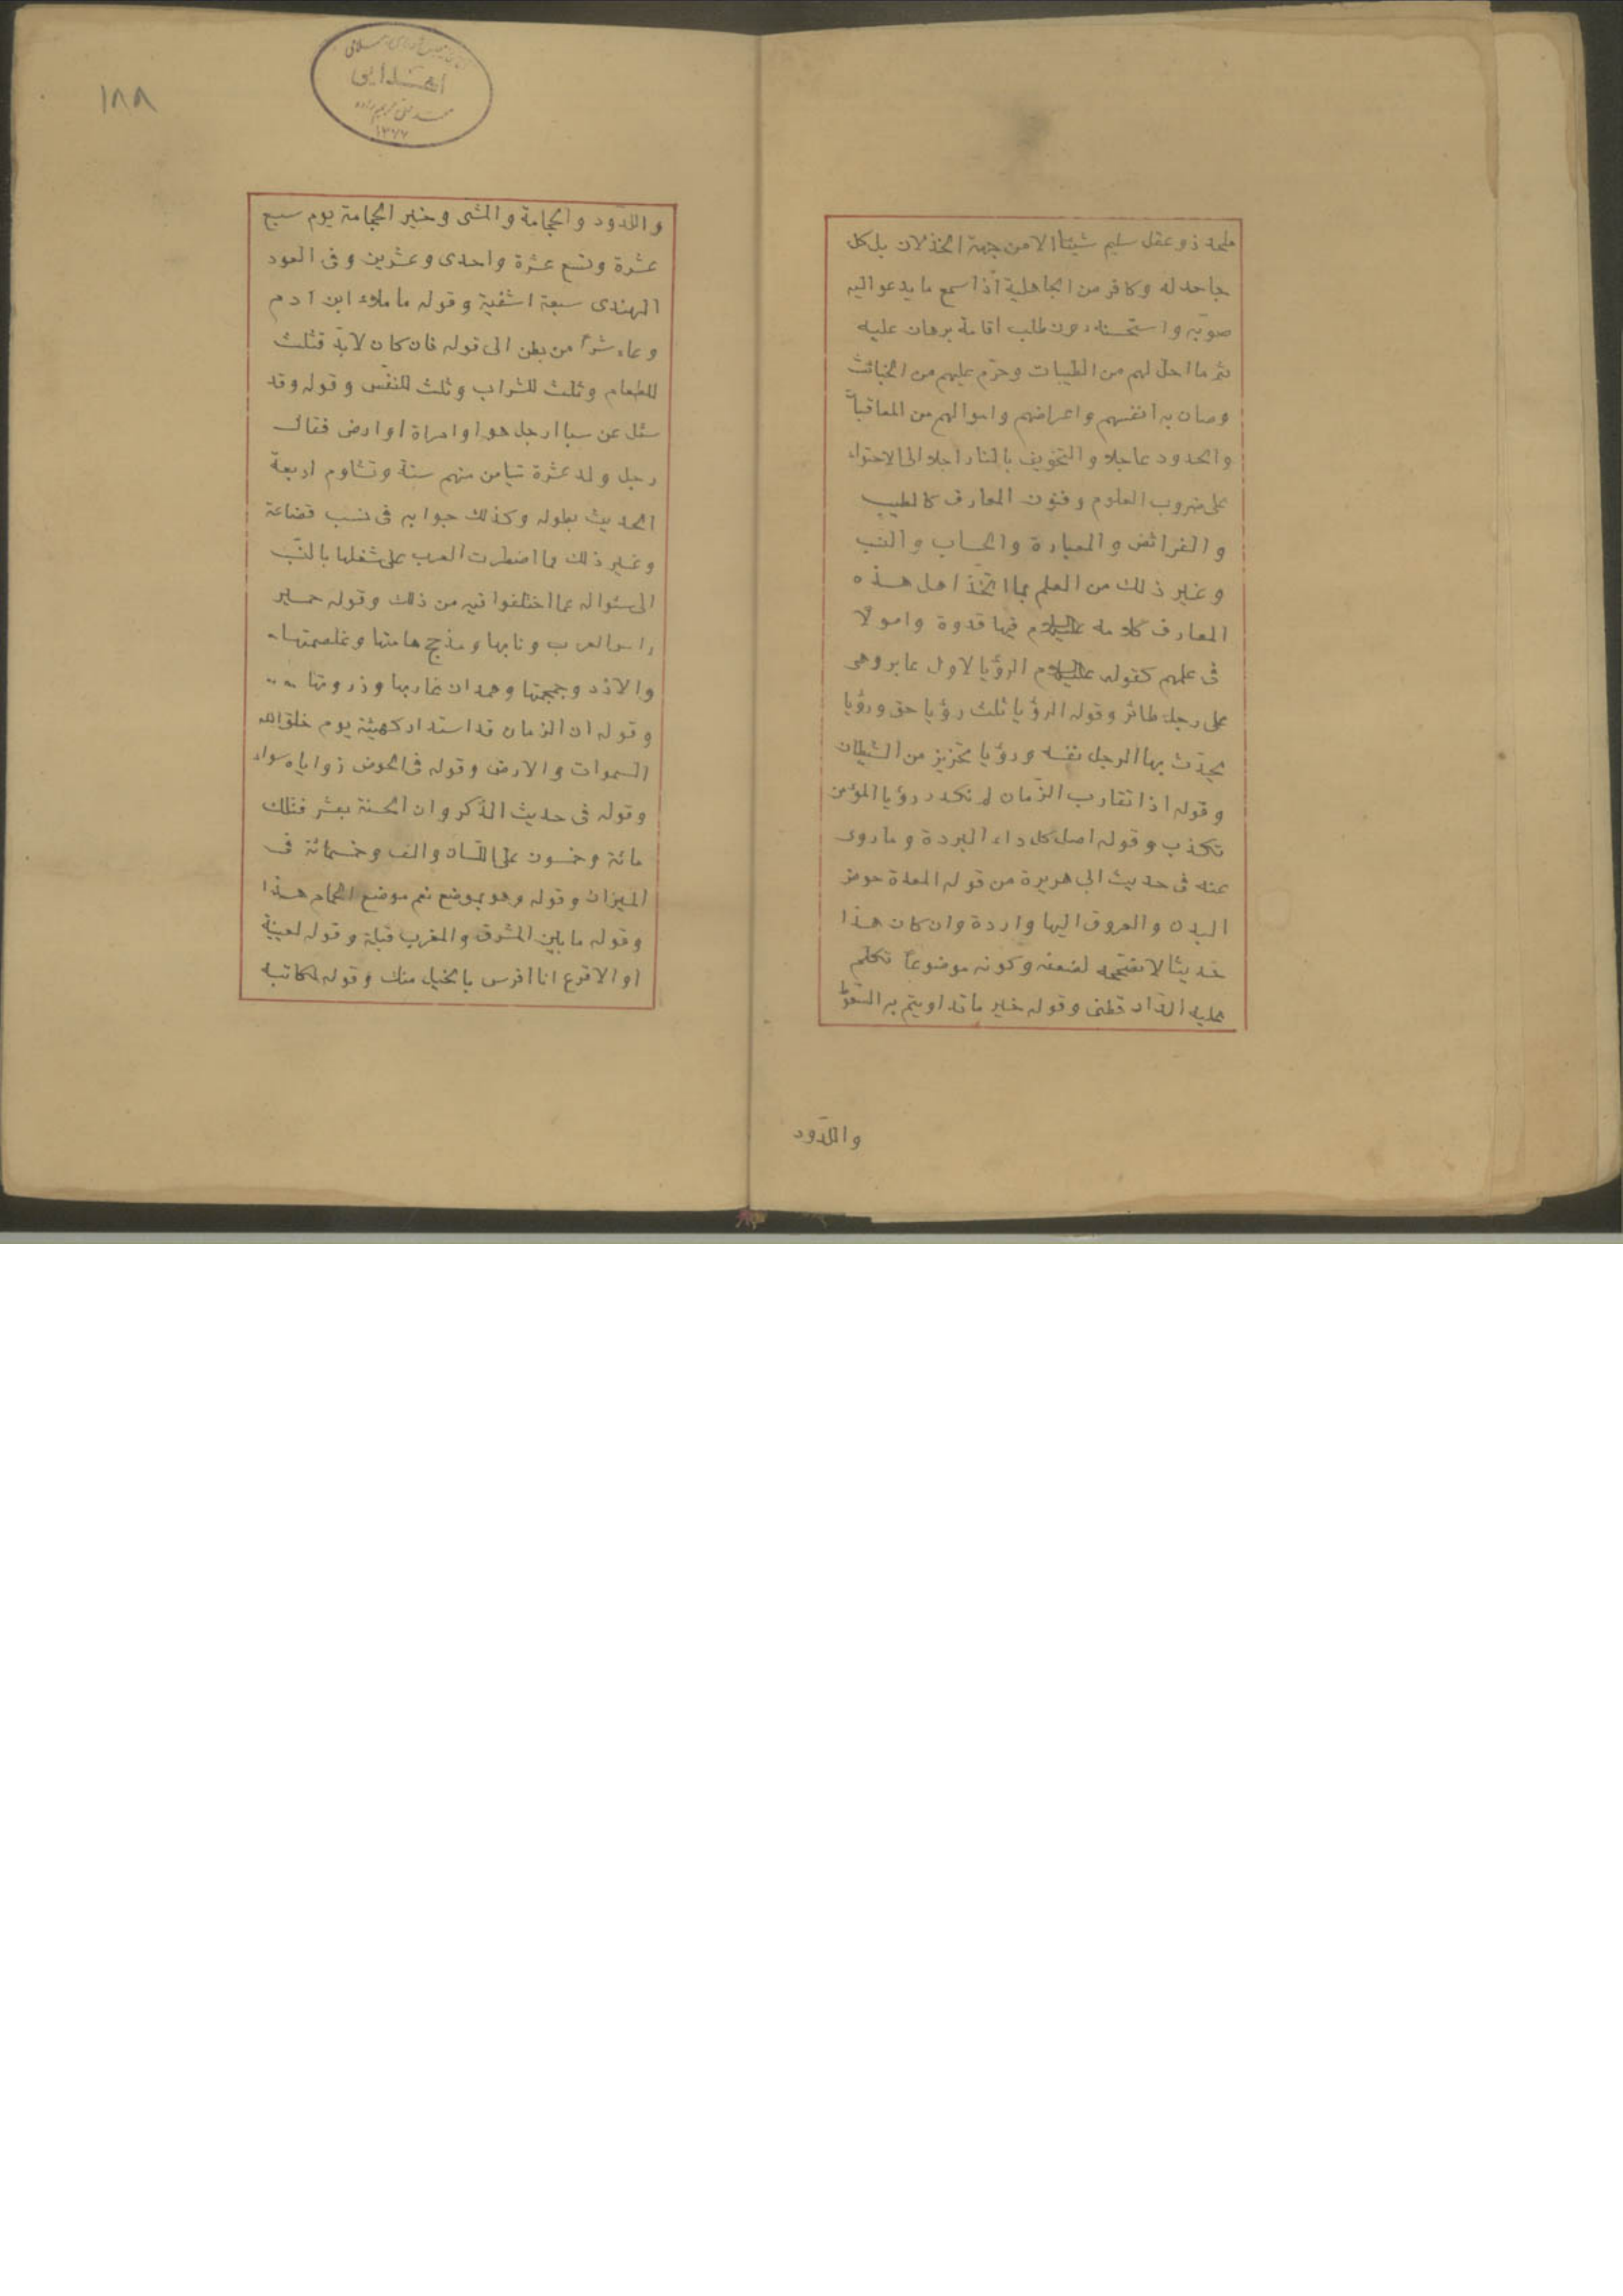 ملحد ذو عقل سليم شيئا الا من جهة الخذلان بل كل
جاحد له وكافر من الجاهلية اذا سمع ما يدعو اليه
صوبه واستحسنه دون طلب اقامة برهان عليه
ثم ما احل لهم من الطيبات وحرم عليهم من الخبائث
وصان به انفسهم واعراضهم واموالهم من المعاقبا
والحدود عاجلا والتخويف بالنار اجلا الى الاحتواء
على ضروب العلوم وفنون المعارف كالطيب
والفرائض والعبارة والحساب والنسب
وغير ذلك من العلم مما اتخذ اهل هذه
المعارف كلامه عليه السلام فيها قدوة واصولا
فى علمهم كقوله عليه السلام الرؤيا لاول عابر وهى
على رجل طائر وقوله الرؤيا ثلث رؤيا حق ورؤيا
يحدث بها الرجل نفسه ورؤيا تحزيز من الشيطان
وقوله اذا تقارب الزمان لم تكد رؤيا المؤمن
تكذب وقوله اصل كل داء البردة وما روى
عنه فى حديث ابي هريرة من قوله المعدة حوض
البدن والعروق اليها واردة وان كان هذا
حديثا لا نصححه لضعفه وكونه موضوعا تكلم
عليه الدار قطنى وقوله خير ما تداويتم به السعوط
واللدود
١٨٨
اهدایی
١٣٧٧
واللدود والحجامة والمشى وخير الحجامة يوم سبع
عشرة وتسع عشرة واحدى وعشرين وفى العود
الهندى سبعة اشفية وقوله ما ملاء ابن ادم
وعاء شرا من بطن الى قوله فان كان لابد فثلث
للطعام وثلث للشراب وثلث للنفس وقوله وقد
سئل عن سبا ارجل هو او امراة او ارض فقال
رجل ولد عشرة تيامن منهم ستة وتشاوم اربعة
الحديث بطوله وكذلك جوابه فى نسب قضاعة
وغير ذلك مما اضطرت العرب على شغلها بالنسب
الى سئواله عما اختلفوا فيه من ذلك وقوله حمير
راس العرب ونابها ومذحج هامتها وغلصمتها
والازد وجمجمتها وهمدان غاربها وذروتها
وقوله ان الزمان قد استدار كهيئة يوم خلق الله
السموات والارض وقوله فى الحوض زواياه سواء
وقوله فى حديث الذكر وان الحسنة بعشر فتلك
مائة وخمسون على اللسان والف وخمسمائة فى
الميزان وقوله وهو بموضع نعم موضع الحمام هذا
وقوله ما بين المشرق والمغرب قبلة وقوله لعيينة
او الاقرع انا افرس بالخيل منك وقوله لكاتبه